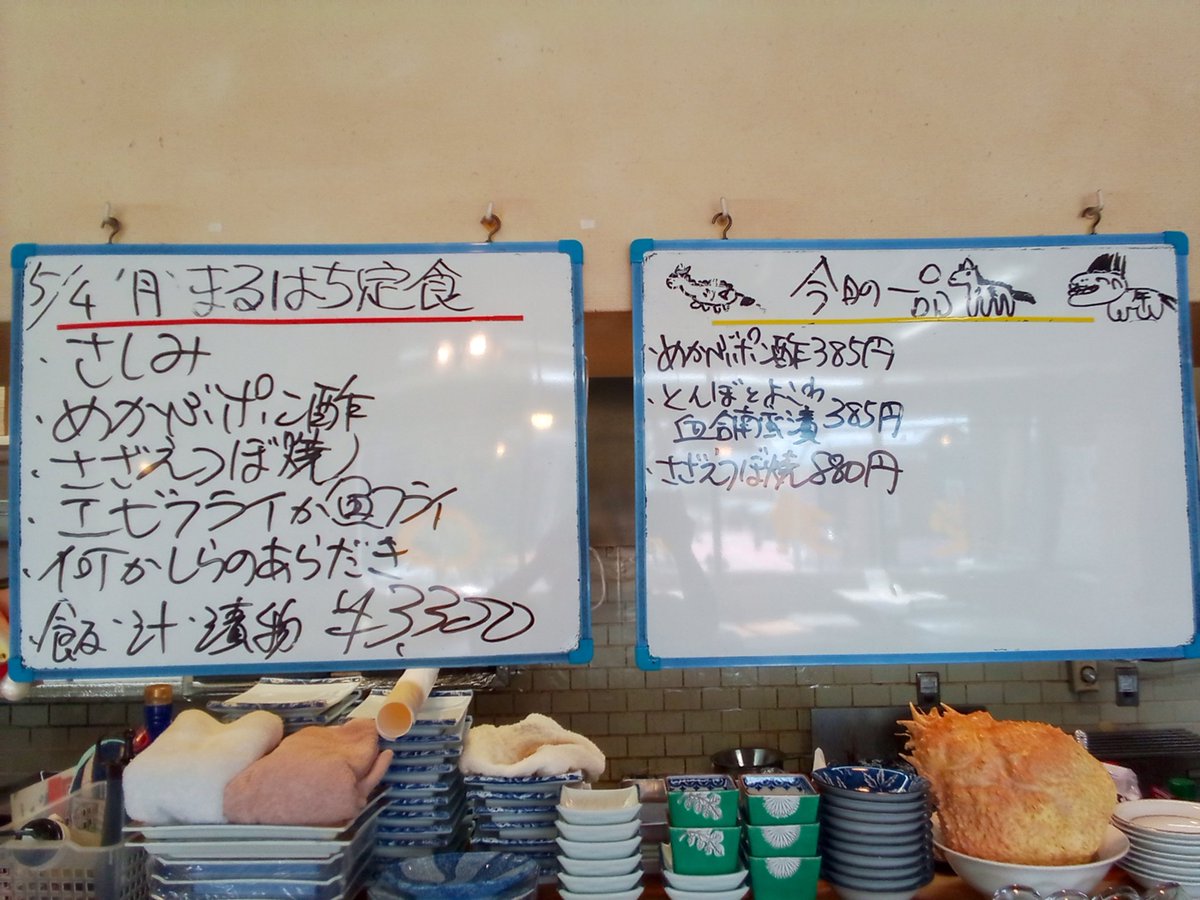 5/4 '月' まるはち定食
・さしみ
・めかぶポン酢
・さざえつぼ焼
・エビフライか魚フライ
・何かしらのあらだき
・飯・汁・漬物 ¥3,300
今日の一品
・めかぶポン酢 385円
・とんぼとよこわ
南蛮漬 385円
・さざえつぼ焼 880円